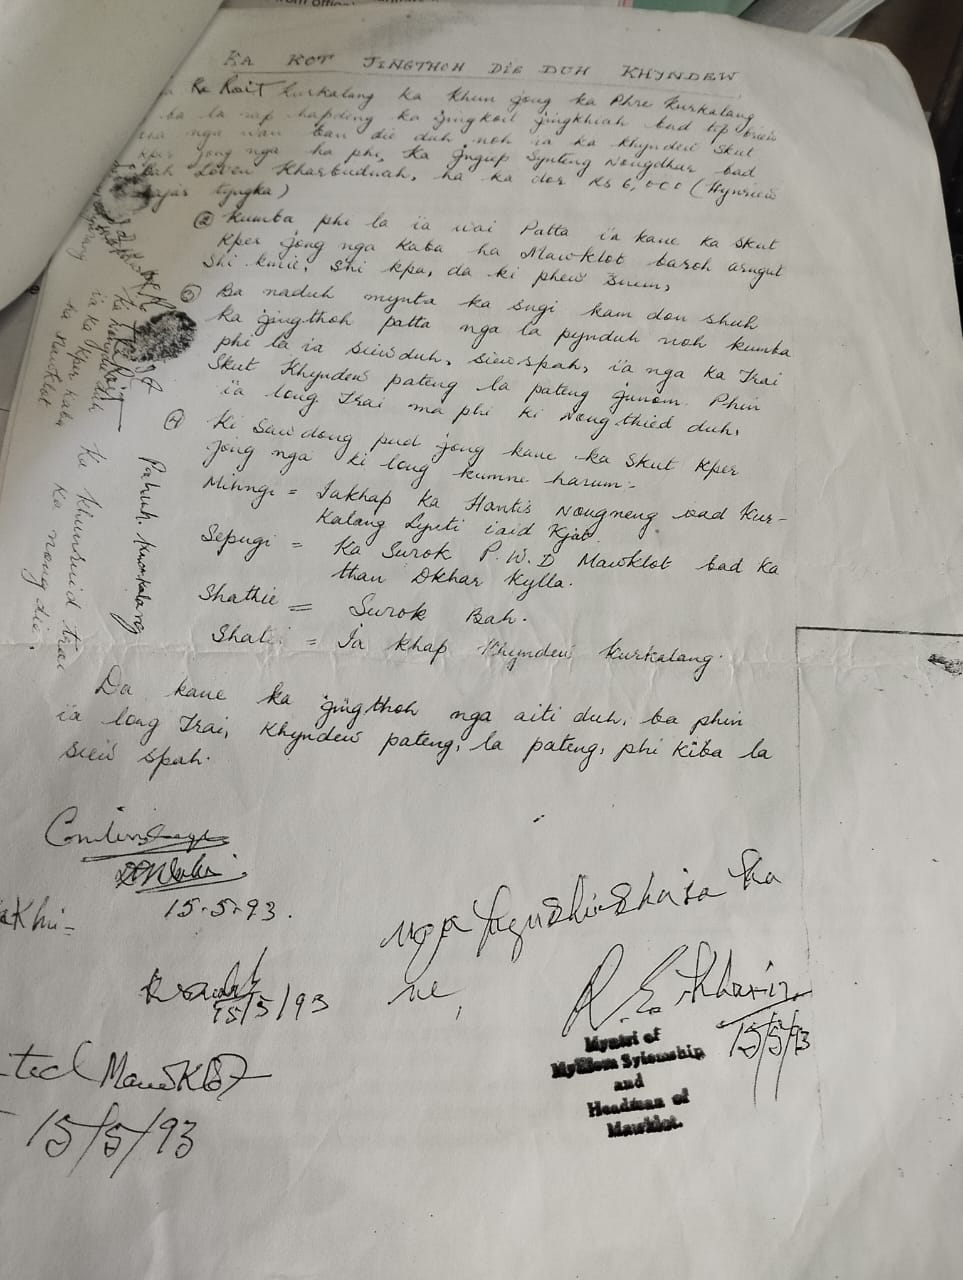 KA KOT JINGTHOH DIE DUH KHYNDEW
Ka Rait Kurkalang ka khun jong ka Phre Kurkalang
ba la rap hapdeng ka jingkoit jingkhiah bad tip briew
nga wan ban die duh noh ia ka khyndew skut
kper jong nga ha phi, Ka Jngup Synteng Nongdhar bad
Bah Loven Kharbuduah, ha ka dor Rs 6,000 (Hynriew
hajar tyngka)
Kumba phi la ia wai Patta ia kane ka skut
kper jong nga kaba ha Mawklot baroh arngut
shi kmie, shi kpa, da ki phew snem,
Ba naduh mynta ka sngi kam don shuh
ka jingthoh patta nga la pynduh noh kumba
phi la ia siew duh, siew spah, ia nga ka Trai
Skut Khyndew pateng la pateng junom. Phin
ia long Trai ma phi ki nongthied duh.
Ki sawdong pud jong kane ka skut kper
jong nga ki long kumne harum:-
Mihngi = Iakhap ka Hantis Nongneng bad Kur-
kalang Lynti iaid kjat
Sepngi = Ka Surok P.W.D Mawklot bad ka
than Dkhar kylla.
Shathie = Surok Bah.
Shatei = Ia khap Khyndew Kurkalang.
Da kane ka jingthoh nga aiti duh, ba phin
ia long Trai, Khyndew pateng, la pateng, phi kiba la
siew spah.
Pahuh. Kurkalang
Ka khunruid trai
Ka nongdie.
ia ka kper kaba
ha Mawklot
15-5-93.
Khi-
15/5/93
nga
ka
ne,
R. E. Kharir
15/5/93
Myntri of
Mylliem Syiemship
and
Headman of
Mawklot.
ted Mawklot
15/5/93